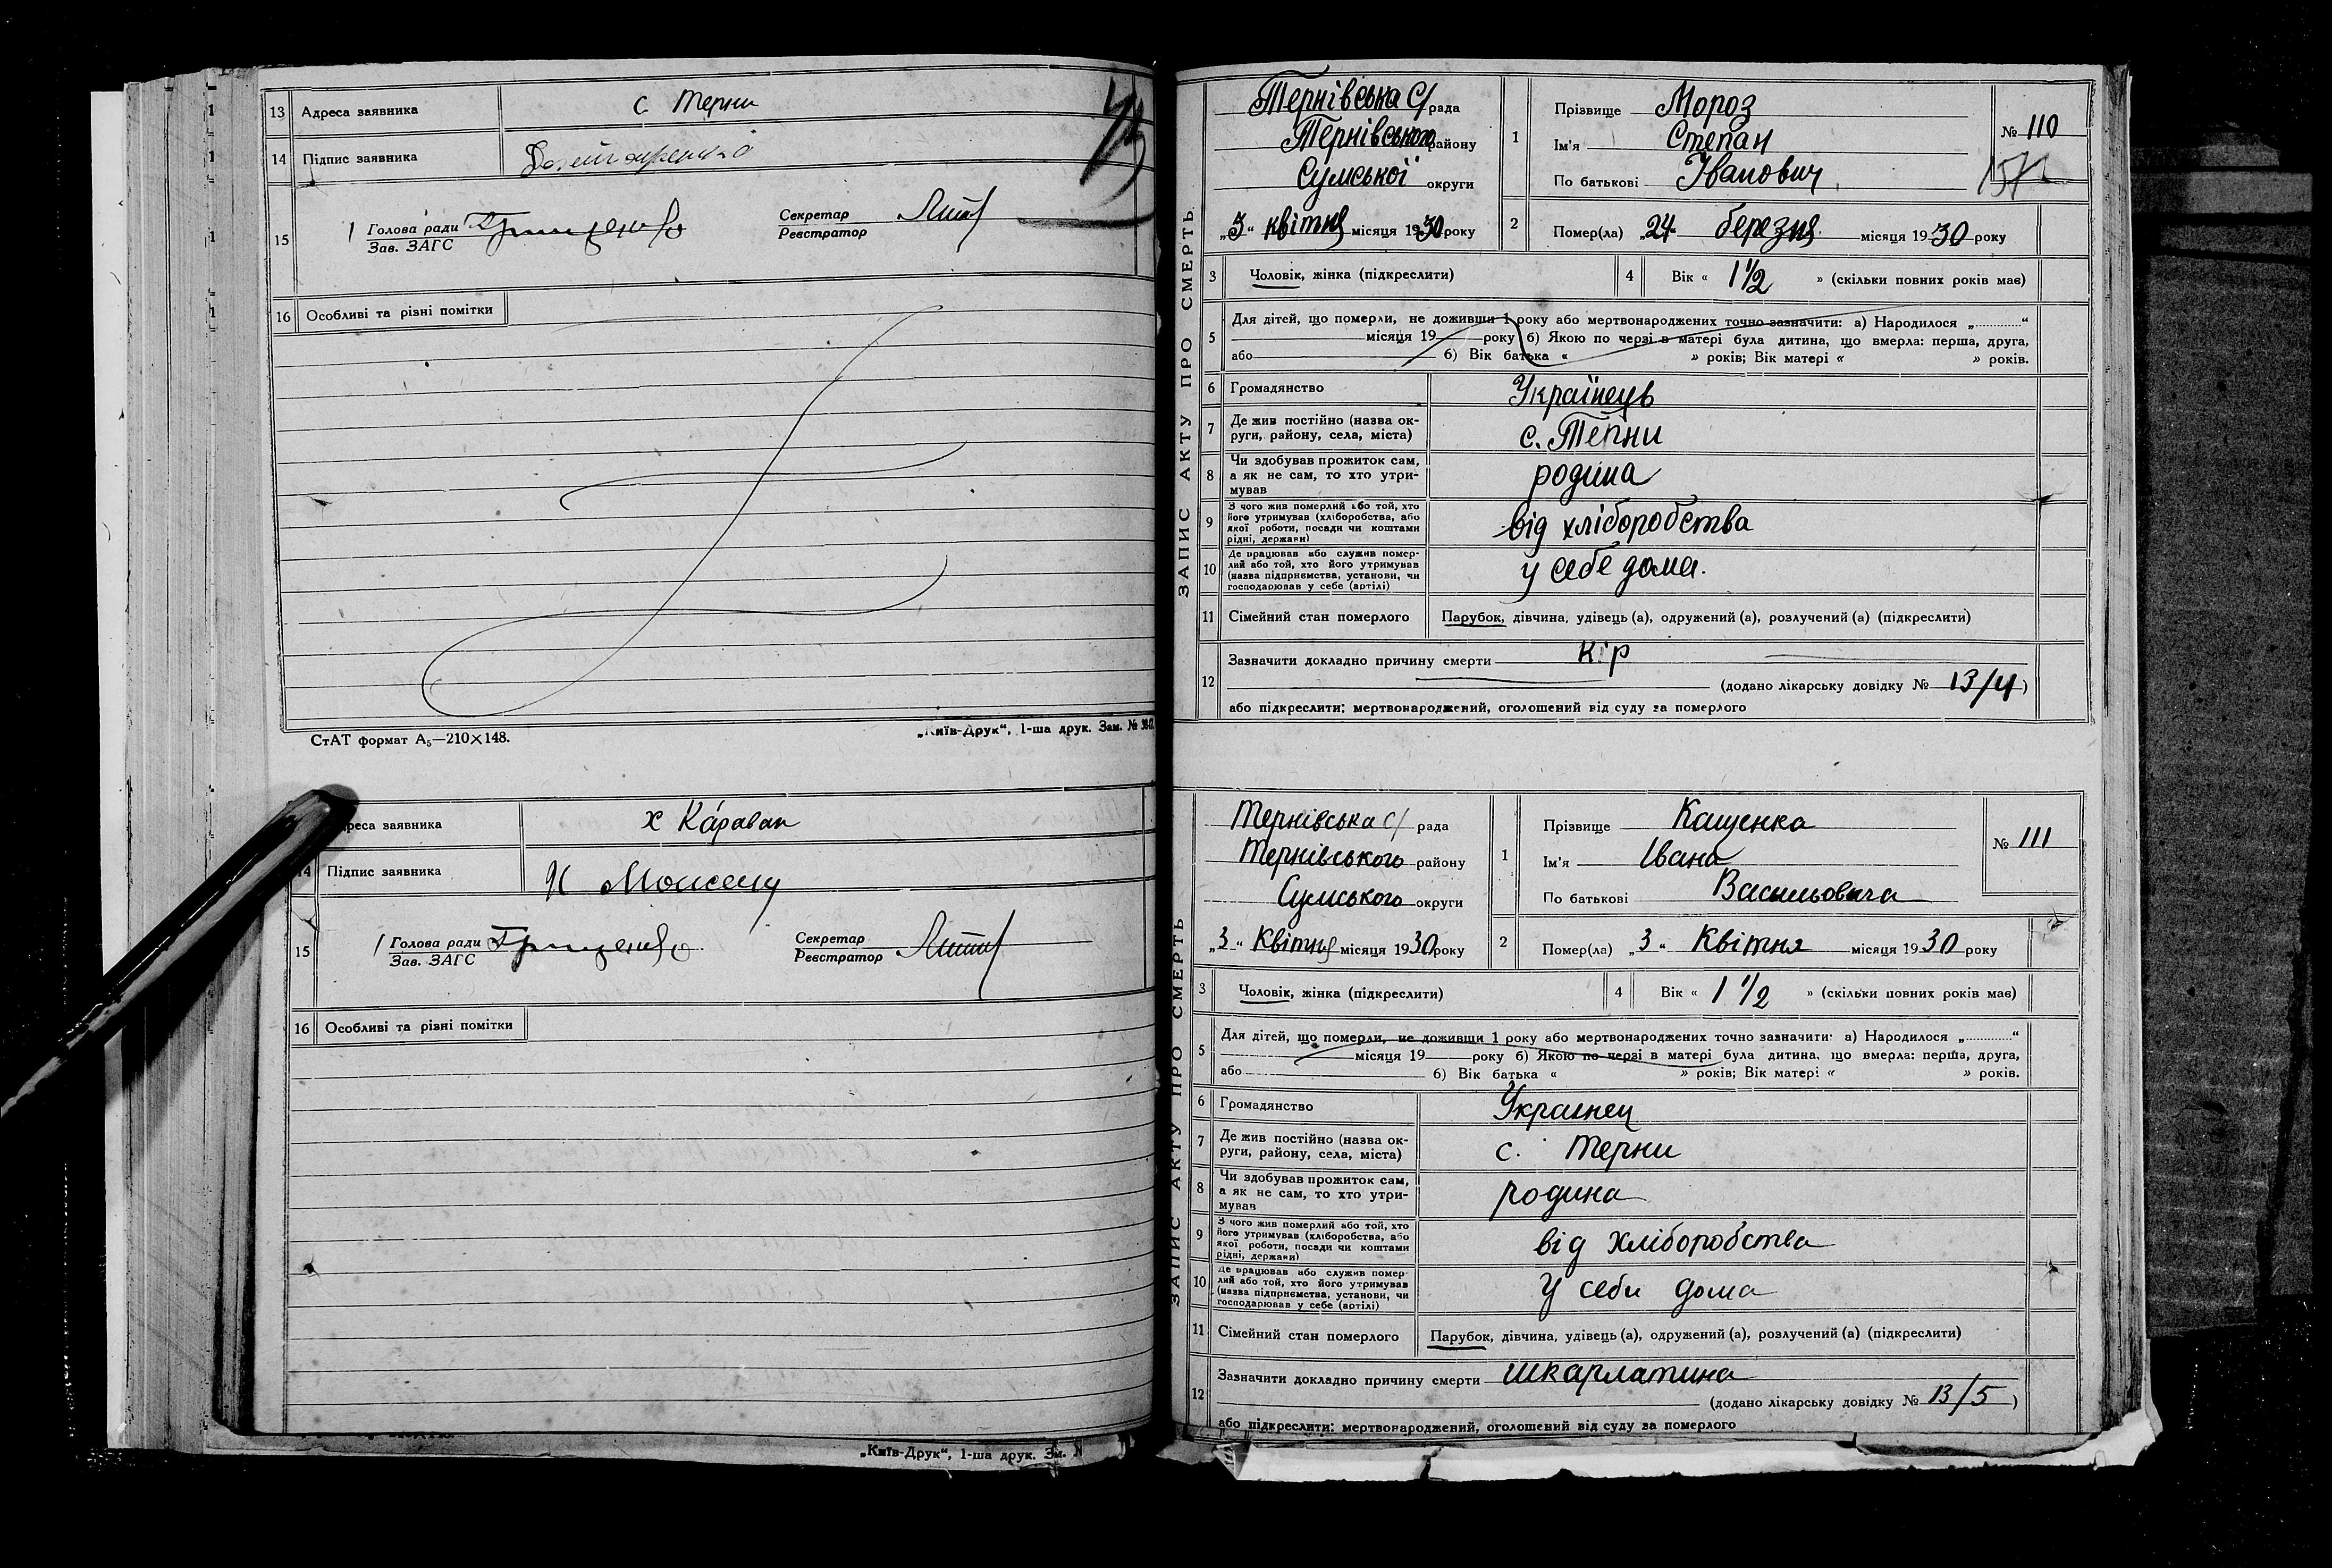 13 Адреса заявника с Терни
14 Підпис заявника
15 Голова ради Грищенко Секретар
Зав. ЗАГС Реєстратор
16 Особливі та різні помітки
СтАТ формат А₅—210×148.
„Київ-Друк“, 1-ша друк. Зам. №
Адреса заявника х Караван
14 Підпис заявника
15 Голова ради Грищенко Секретар
Зав. ЗАГС Реєстратор
16 Особливі та різні помітки
„Київ-Друк“, 1-ша друк. Зам.
ЗАПИС АКТУ ПРО СМЕРТЬ
Тернівська С/рада
Тернівського району
Сумської округи
„3“ квітня місяця 1930 року
1 Прізвище Мороз
Ім'я Степан
По батькові Іванович
№ 110
2 Помер(ла) „24“ березня місяця 1930 року
3 Чоловік, жінка (підкреслити)
4 Вік « 1 1/2 » (скільки повних років має)
5 Для дітей, що померли, не доживши 1 року або мертвонароджених точно зазначити: а) Народилося „.............“
місяця 19 року б) Якою по черзі в матері була дитина, що вмерла: перша, друга,
або б) Вік батька « » років; Вік матері « » років.
6 Громадянство Українець
7 Де жив постійно (назва округи, району, села, міста) с. Терни
8 Чи здобував прожиток сам, а як не сам, то хто утримував родина
9 З чого жив померлий або той, хто його утримував (хліборобства, або якої роботи, посади чи коштами рідні, держави) від хліборобства
10 Де працював або служив померлий або той, хто його утримував (назва підприємства, установи, чи господарював у себе (артілі) у себе дома.
11 Сімейний стан померлого Парубок, дівчина, удівець (а), одружений (а), розлучений (а) (підкреслити)
12 Зазначити докладно причину смерти кір
(додано лікарську довідку № 13/4)
або підкреслити: мертвонароджений, оголошений від суду за померлого
ЗАПИС АКТУ ПРО СМЕРТЬ
Тернівська с/ рада
Тернівського району
Сумського округи
„3“ Квітня місяця 1930 року
1 Прізвище Кащенка
Ім'я Івана
По батькові Васильовича
№ 111
2 Помер(ла) „3“ Квітня місяця 1930 року
3 Чоловік, жінка (підкреслити)
4 Вік « 1 1/2 » (скільки повних років має)
5 Для дітей, що померли, не доживши 1 року або мертвонароджених точно зазначити: а) Народилося „.............“
місяця 19 року б) Якою по черзі в матері була дитина, що вмерла: перша, друга,
або б) Вік батька « » років; Вік матері « » років.
6 Громадянство Украінец
7 Де жив постійно (назва округи, району, села, міста) с. Терни
8 Чи здобував прожиток сам, а як не сам, то хто утримував родина
9 З чого жив померлий або той, хто його утримував (хліборобства, або якої роботи, посади чи коштами рідні, держави) від хліборобства
10 Де працював або служив померлий або той, хто його утримував (назва підприємства, установи, чи господарював у себе (артілі) У себи дома
11 Сімейний стан померлого Парубок, дівчина, удівець (а), одружений (а), розлучений (а) (підкреслити)
12 Зазначити докладно причину смерти шкарлатина
(додано лікарську довідку № 13/5)
або підкреслити: мертвонароджений, оголошений від суду за померлого